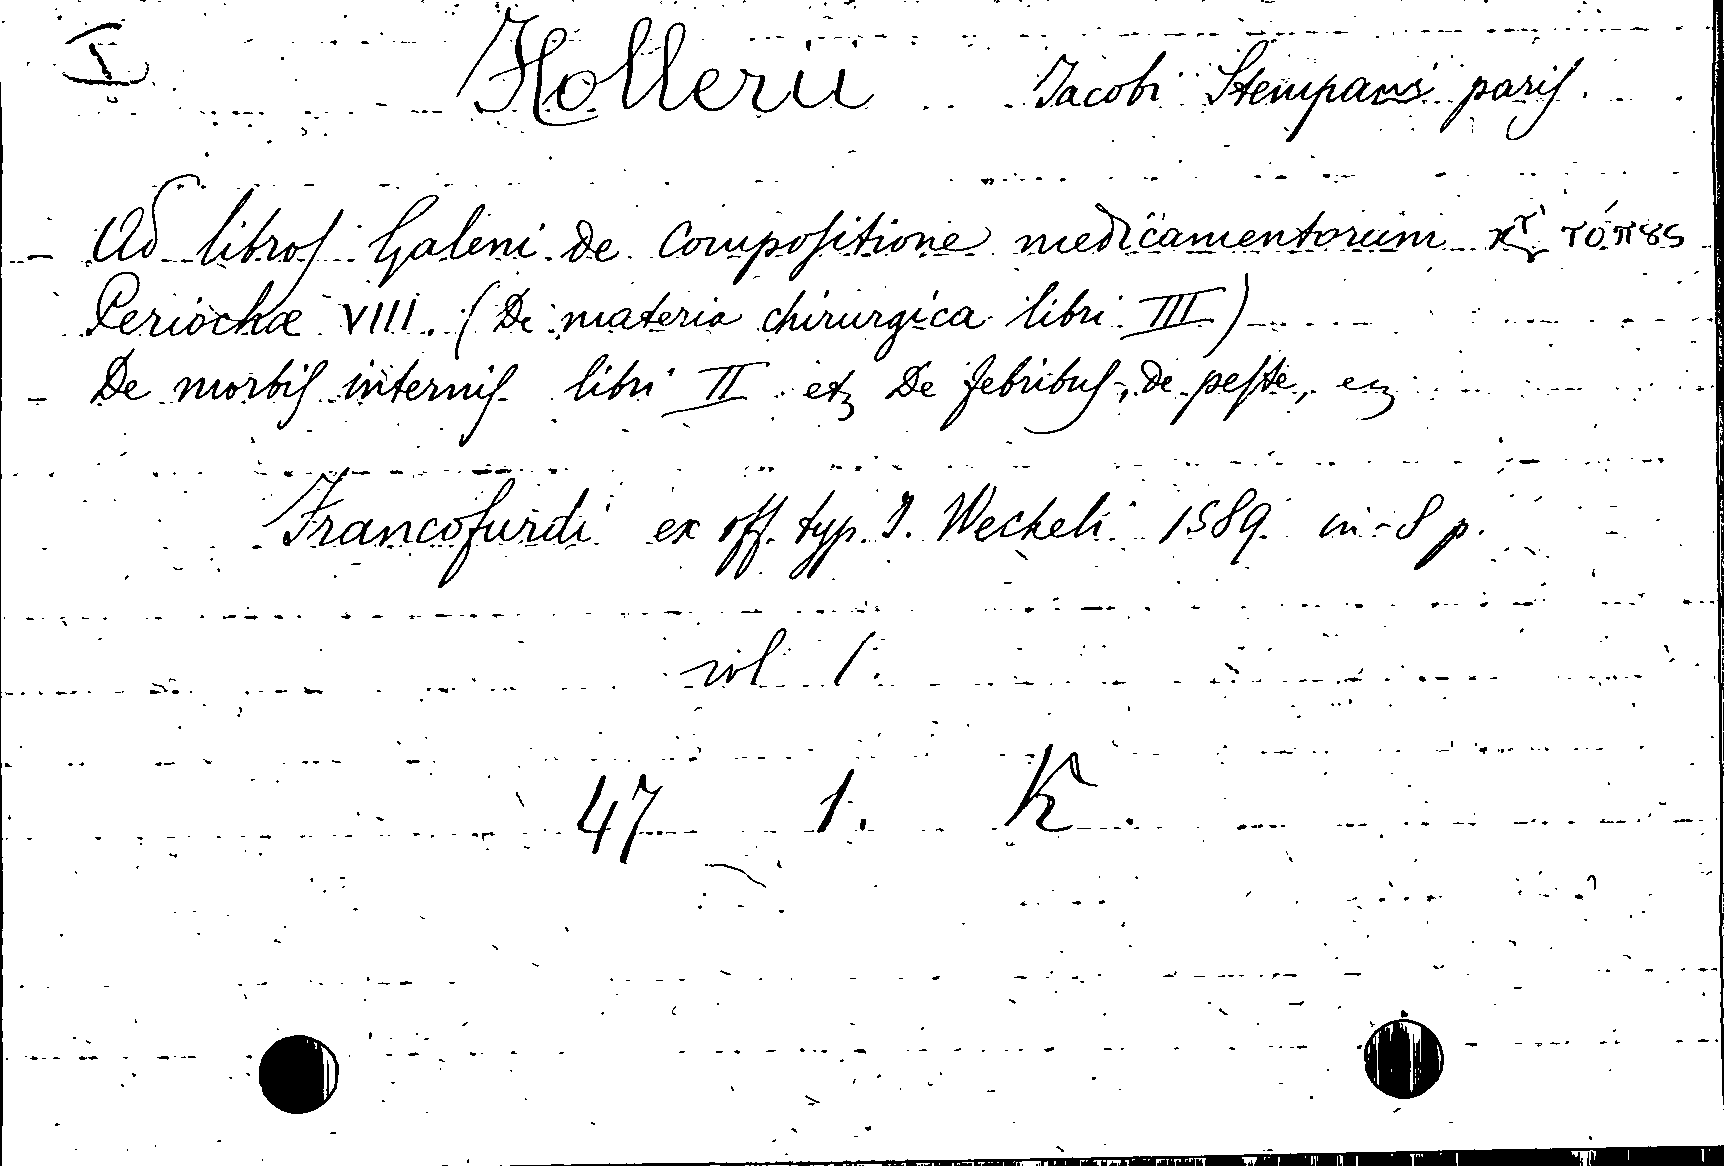 I Hollerii Jacobi Stempani paris.
- Ad libros Galeni de Compositione medicamentorum κτ̀ τόπȣς
Periochæ VIII. (De materia chirurgica libri III)
- De morbis internis libri II et De febribus, de peste,
Francofurdi ex off. typ. J. Wecheli 1589. in-8 p.
vol 1.
47 1. K